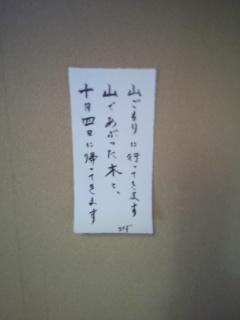 山ごもりに行ってきます
山であぶった木と、
十月四日に帰ってきます